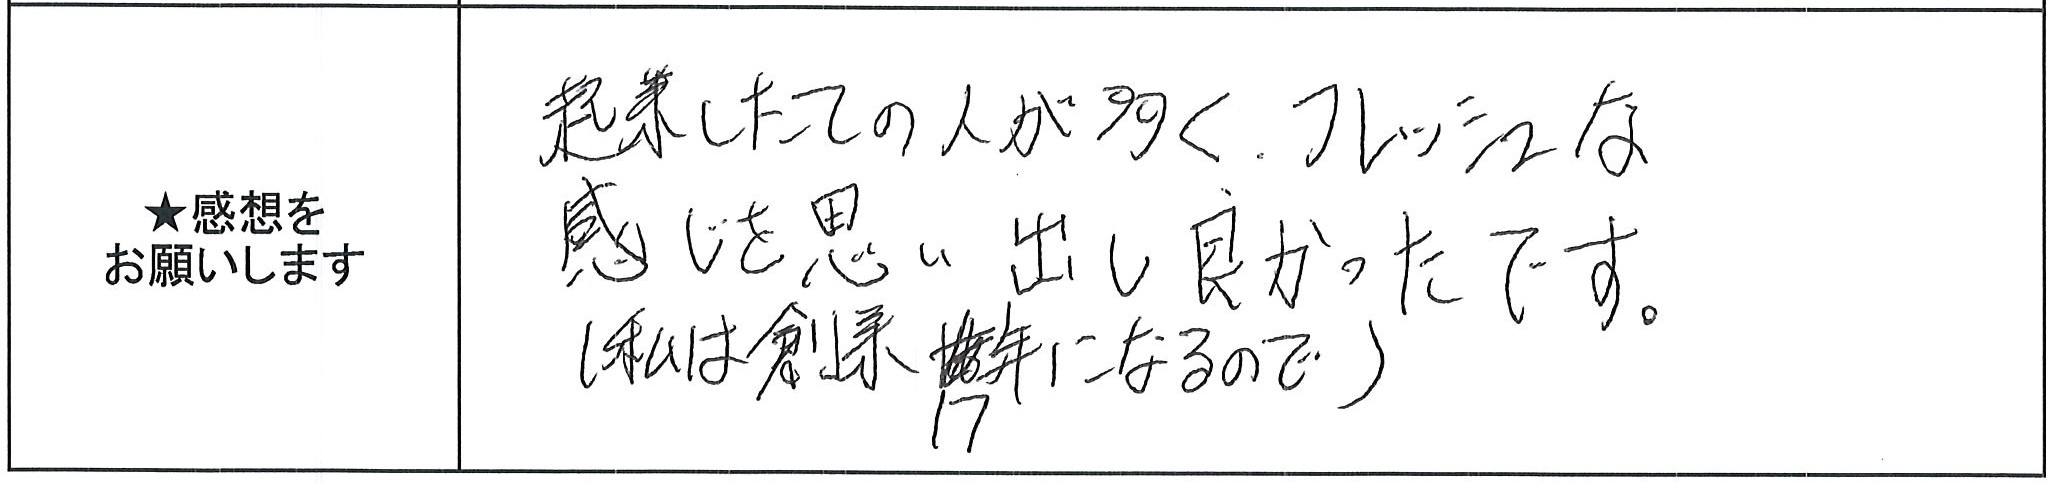 ★感想を
お願いします
起業したての人が多く、フレッシュな
感じを思い出し良かったです。
(私は創業 年になるので)
17